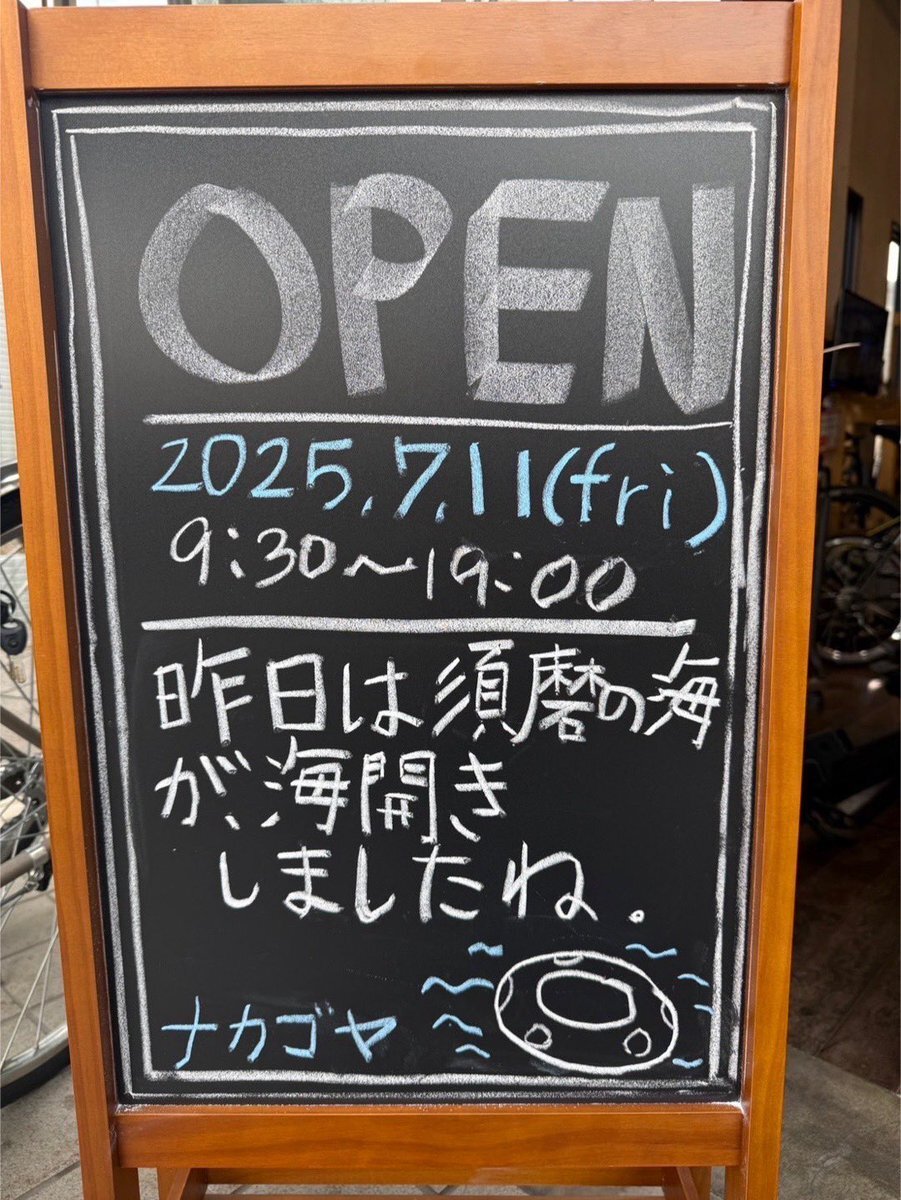 OPEN
2025.7.11(fri)
9:30~19:00
昨日は須磨の海
が、海開き
しましたね.
ナカゴヤ